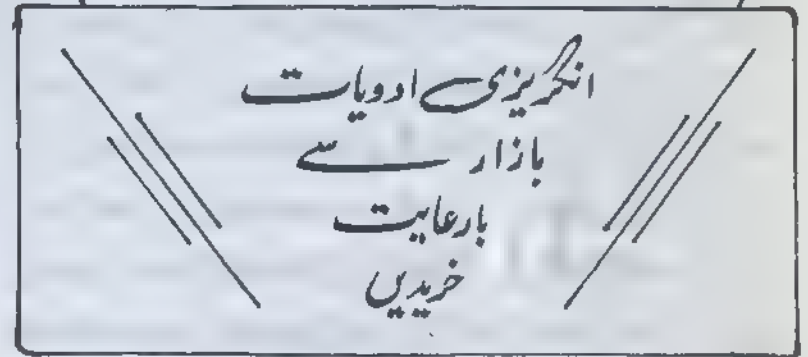 انگریزی ادویات
بازار سے
بارعایت
خریدیں